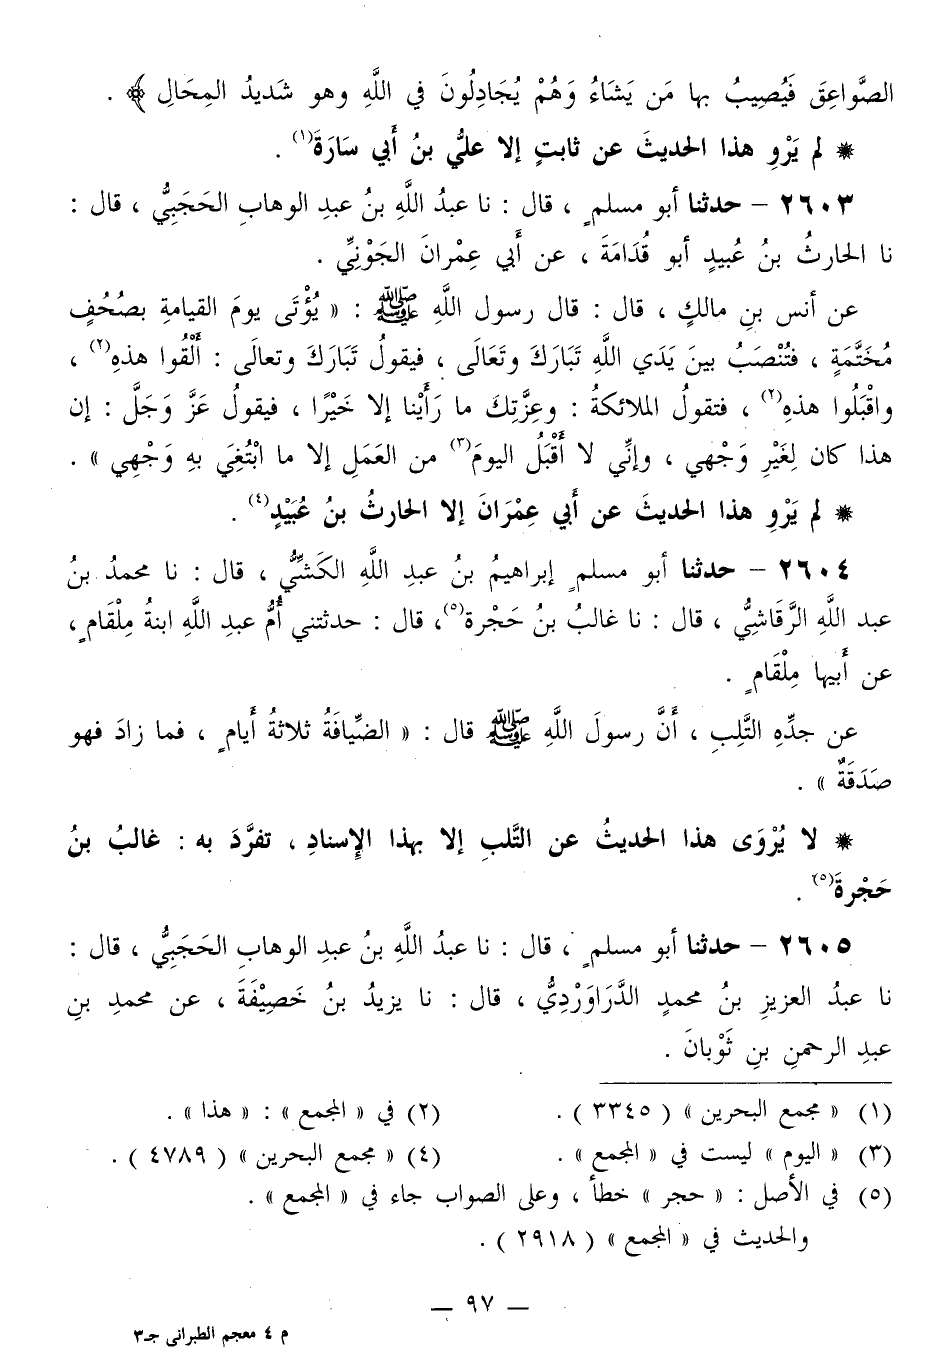 الصَّواعِقَ فَيُصِيبُ بها مَن يَشَاءُ وَهُمْ يُجَادِلُونَ في اللَّهِ وهو شَديدُ المِحَالِ ﴾ .
* لم يَرْوِ هذا الحديثَ عن ثابتٍ إلا عليُّ بنُ أَبي سارَةَ(١) .
٢٦٠٣ – حدثنا أبو مسلمٍ ، قال : نا عبدُ اللَّهِ بنُ عبدِ الوهابِ الحَجَبيُّ ، قال :
نا الحارثُ بنُ عُبيدٍ أبو قُدَامَةَ ، عن أَبي عِمْرانَ الجَوْنِيِّ .
عن أنس بنِ مالكٍ ، قال : قال رسول اللَّهِ ﷺ : « يُؤْتَى يومَ القيامةِ بصُحُفٍ
مُخَتَّمَةٍ ، فتُنْصَبُ بينَ يَدَي اللَّهِ تَبَارَكَ وتَعَالَى ، فيقولُ تَبَارَكَ وتعالَى : أَلْقُوا هذهِ(٢) ،
واقْبَلُوا هذهِ(٢) ، فتقولُ الملائكةُ : وعِزَّتِكَ ما رَأَيْنا إلا خَيْرًا ، فيقولُ عَزَّ وَجَلَّ : إن
هذا كان لِغَيْرِ وَجْهي ، وإنِّي لا أَقْبَلُ اليومَ(٣) من العَمَلِ إلا ما ابْتُغِيَ بهِ وَجْهِي » .
* لم يَرْوِ هذا الحديثَ عن أَبي عِمْرَانَ إلا الحارثُ بنُ عُبَيْدٍ(٤) .
٢٦٠٤ – حدثنا أبو مسلمٍ إبراهيمُ بنُ عبدِ اللَّهِ الكَشِّيُّ ، قال : نا محمدُ بنُ
عبد اللَّهِ الرَّقَاشِيُّ ، قال : نا غالبُ بنُ حَجْرة(٥)، قال : حدثتني أُمُّ عبدِ اللَّهِ ابنةُ مِلْقَامٍ ،
عن أَبيها مِلْقَامٍ .
عن جدِّهِ التَّلِبِ ، أَنَّ رسولَ اللَّهِ ﷺ قال : « الضِّيافَةُ ثلاثةُ أَيامٍ ، فما زادَ فهو
صَدَقَةٌ » .
* لا يُرْوَى هذا الحديثُ عن التَّلبِ إلا بهذا الإسنادِ ، تفرَّدَ به : غالبُ بنُ
حَجْرةَ(٥) .
٢٦٠٥ – حدثنا أبو مسلمٍ ، قال : نا عبدُ اللَّهِ بنُ عبدِ الوهابِ الحَجَبيُّ ، قال :
نا عبدُ العزيزِ بنُ محمدٍ الدَّرَاوَرْدِيُّ ، قال : نا يزيدُ بنُ خَصِيْفَةَ ، عن محمدِ بنِ
عبدِ الرحمنِ بنِ ثَوْبانَ .
(١) « مجمع البحرين » ( ٣٣٤٥ ) . (٢) في « المجمع » : « هذا » .
(٣) « اليوم » ليست في « المجمع » . (٤) « مجمع البحرين » ( ٤٧٨٩ ) .
(٥) في الأصل : « حجر » خطأ ، وعلى الصواب جاء في « المجمع » .
والحديث في « المجمع » ( ٢٩١٨ ) .
— ٩٧ —
م ٤ معجم الطبراني جـ٣